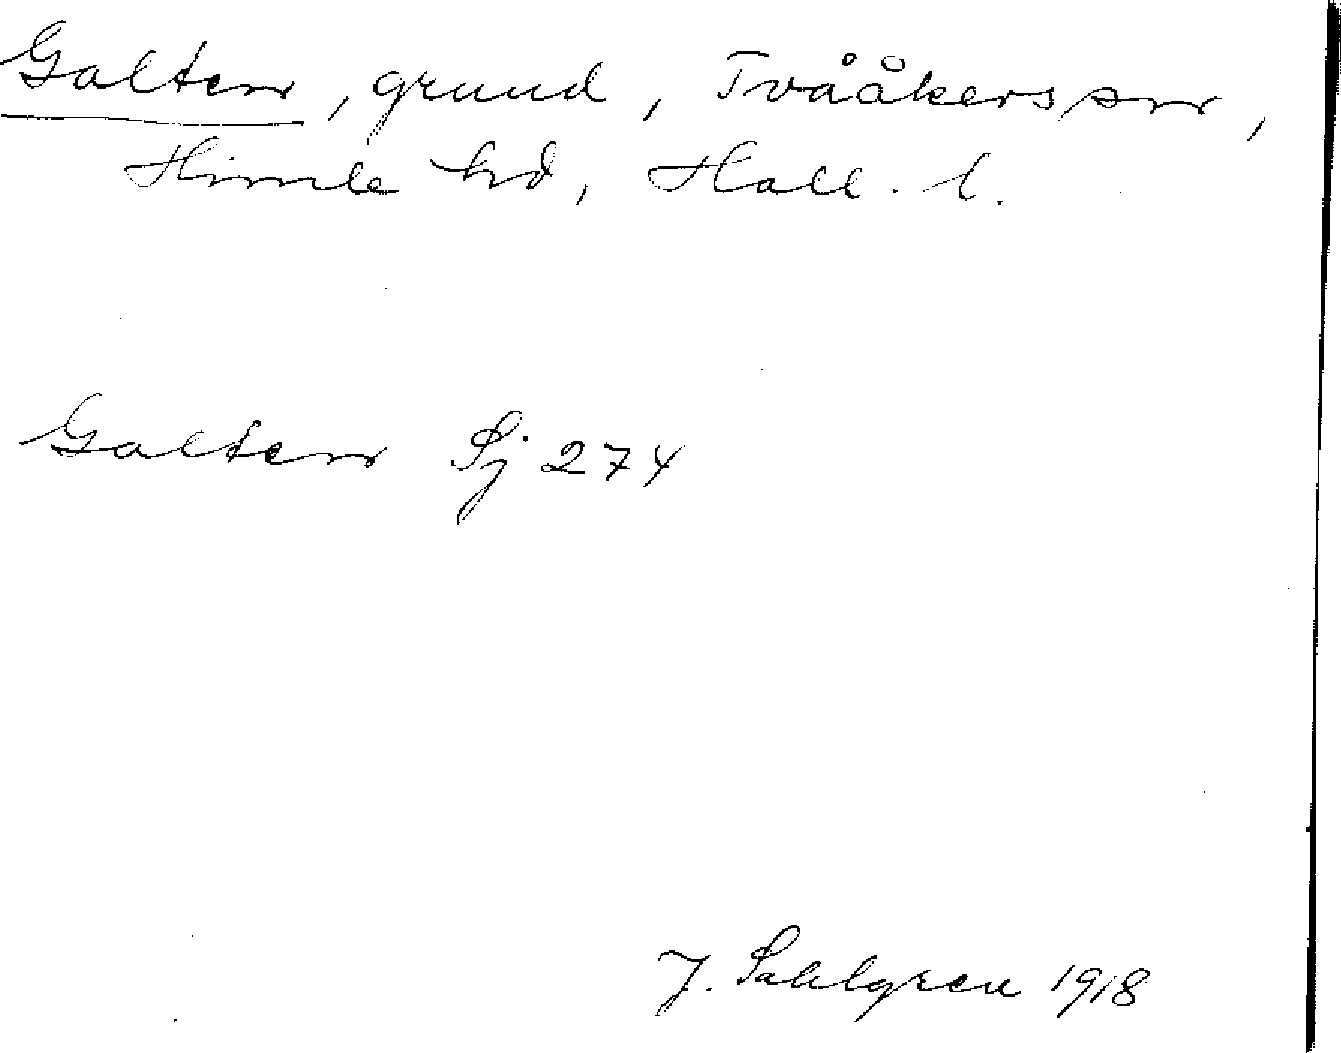 Galten, grund, Tvååkers sn,
Himle hd, Hall. l.
Galten Sj 274
J. Sahlgren 1918